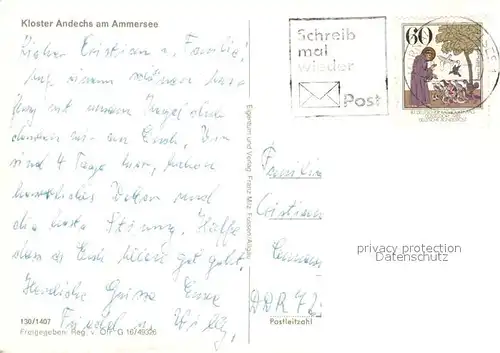 Kloster Andechs am Ammersee
Lieber Cristian u. Familie!
Auf einem schönen Aus-
flug mit unserem
denken wir an Euch. Wir
sind 4 Tage hier, haben
herrliches Wetter und
die beste Stimmung. Hoffe
dass es Euch allen gut geht.
Herzliche Grüsse Eure
Willy
130/1407
Freigegeben: Reg. v. Obb. G 16/49326
Eigentum und Verlag Franz Milz, Füssen/Allgäu
Schreib
mal
wieder
Post
60
DEUTSCHE BUNDESPOST
Familie
Cristian
DDR 72
Postleitzahl
privacy protection
Datenschutz